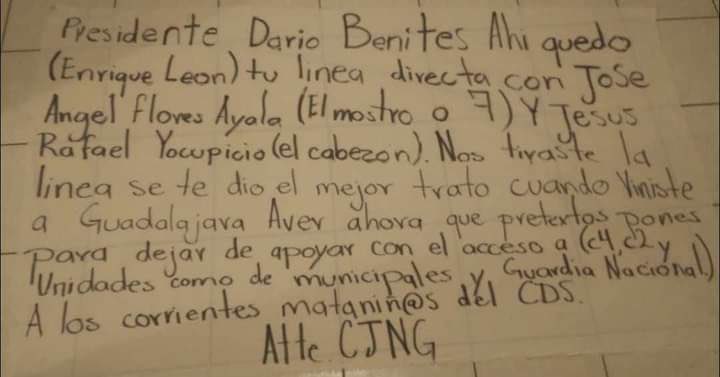 Presidente Dario Benites Ahi quedo
(Enrique Leon) tu linea directa con Jose
Angel flores Ayala (El mostro o 7) Y Jesus
Rafael Yocupicio (el cabezon). Nos tiraste la
linea se te dio el mejor trato cuando Viniste
a Guadalajara Aver ahora que pretextos pones
para dejar de apoyar con el acceso a (c4, c2 y
Unidades como de municipales y Guardia Nacional)
A los corrientes matanin@s del CDS.
Atte CJNG